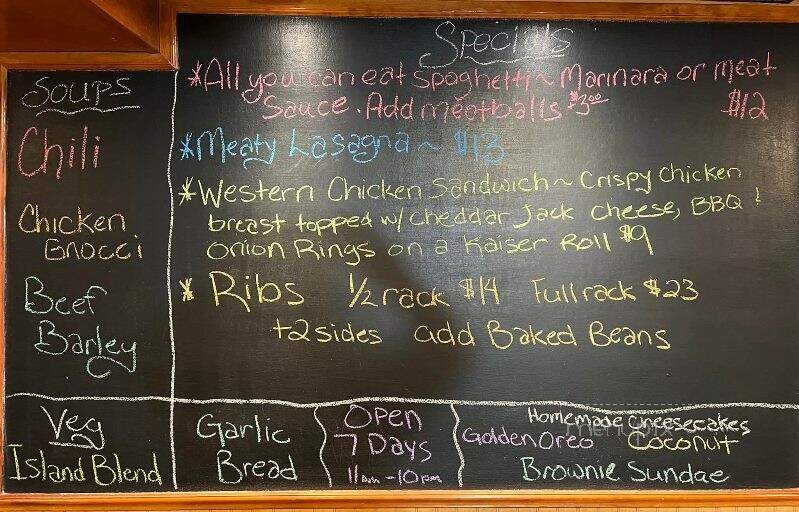 Specials
*All you can eat Spaghetti ~ Marinara or meat
Sauce. Add meatballs $3.00 $12
*Meaty Lasagna ~ $13
*Western Chicken Sandwich ~ Crispy Chicken
breast topped w/ cheddar Jack cheese, BBQ &
Onion Rings on a Kaiser Roll $9
* Ribs 1/2 rack $14 Full rack $23
+2 sides add Baked Beans
Soups
Chili
Chicken
Gnocci
Beef
Barley
Veg
Island Blend
Garlic
Bread
Open
7 Days
11am-10pm
Homemade Cheesecakes
Golden Oreo Coconut
Brownie Sundae